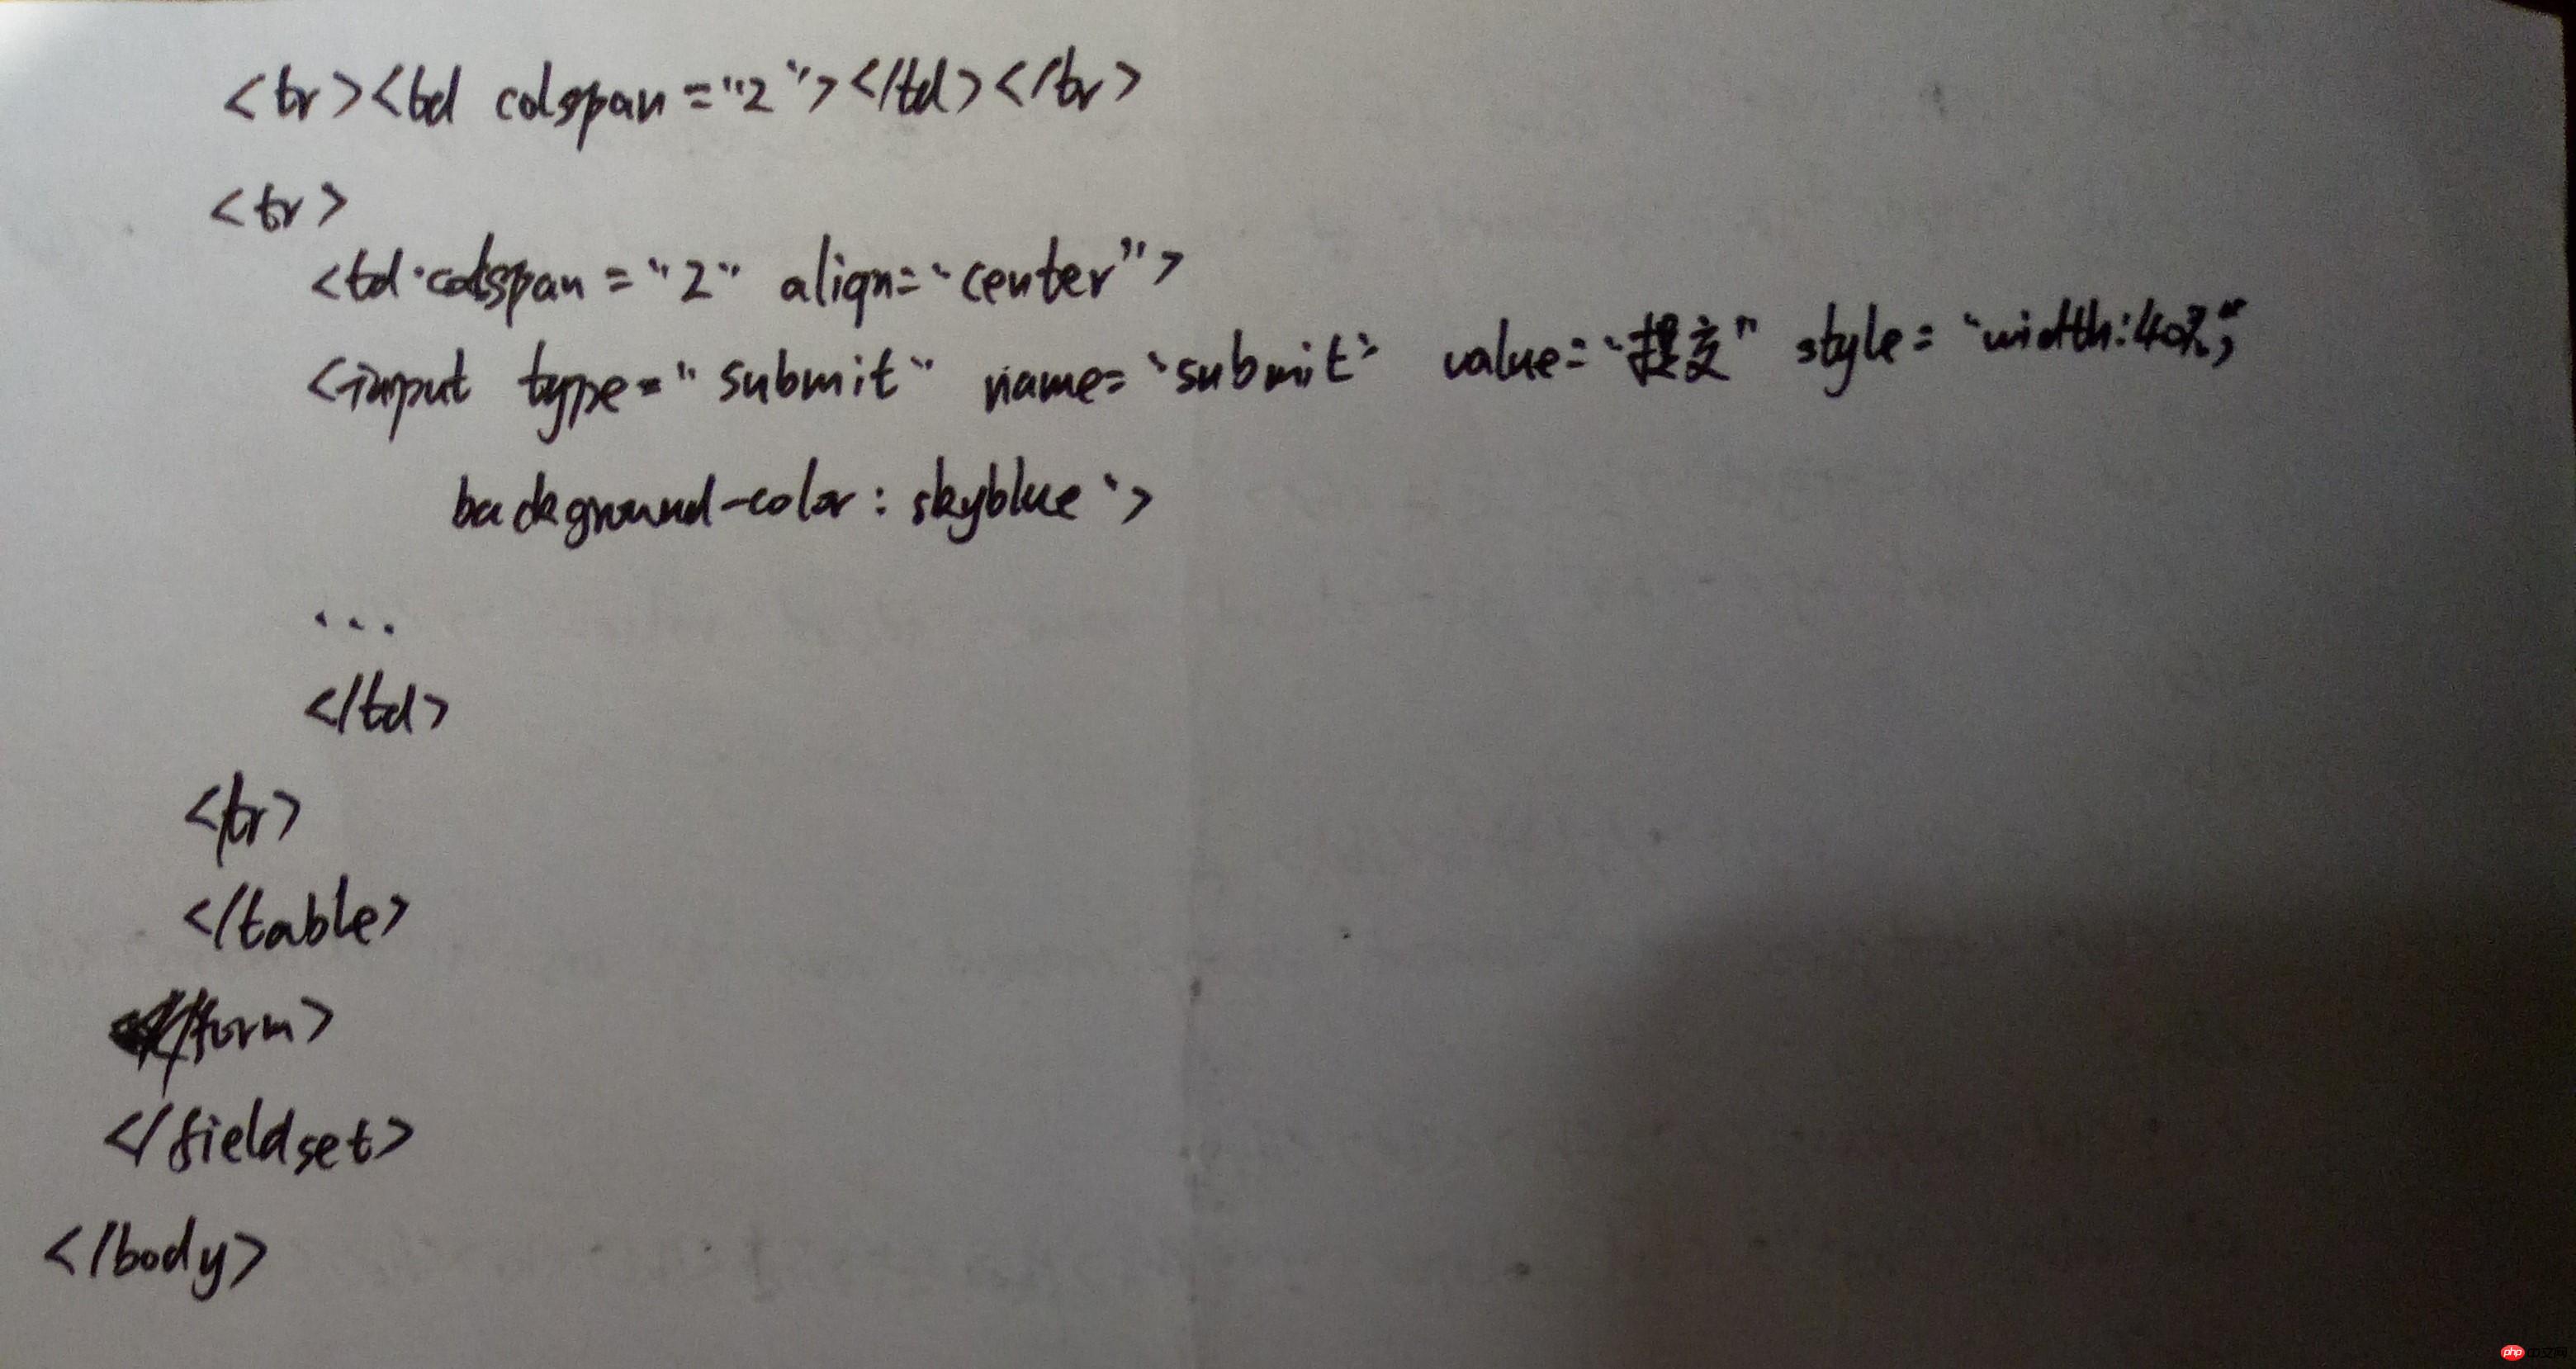 <tr><td colspan="2"></td></tr>
<tr>
<td colspan="2" align="center">
<input type="submit" name="submit" value="提交" style="width:40%;"
background-color: skyblue">
...
</td>
</tr>
</table>
</form>
</fieldset>
</body>
php